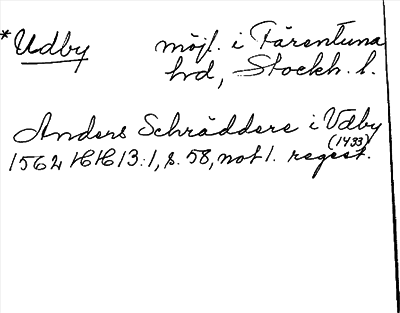 *Udby möjl. i Färentuna
hrd, Stockh. l.
Anders Schräddere i Vdby
(1433)
1562 HH 13:1, s. 58, not 1. regest.